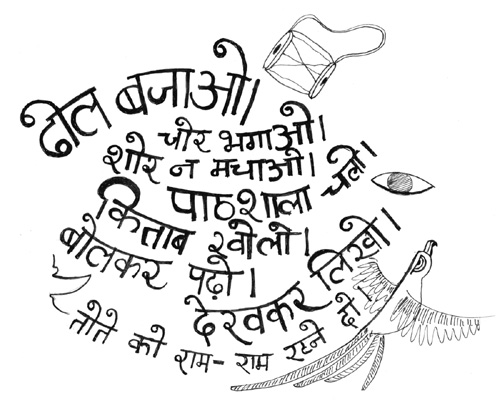 ढोल बजाओ।
चोर भगाओ।
शोर न मचाओ।
पाठशाला चलो।
किताब खोलो।
बोलकर पढ़ो।
देखकर लिखो।
तोते को राम-राम रटने दो।